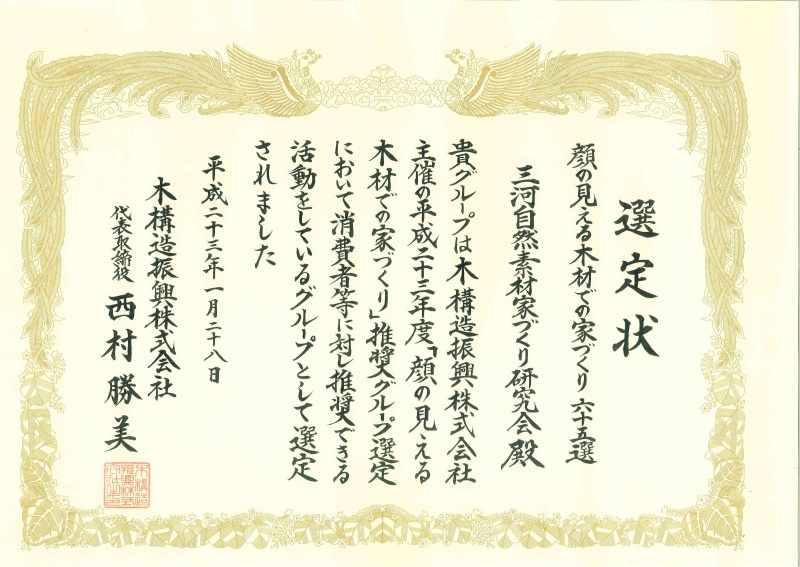 選定状
顔の見える木材での家づくり 六十五選
三河自然素材家づくり研究会殿
貴グループは木構造振興株式会社
主催の平成二十三年度「顔の見える
木材での家づくり」推奨グループ選定
において消費者等に対し推奨できる
活動をしているグループとして選定
されました
平成二十三年一月二十八日
木構造振興株式会社
代表取締役 西村勝美